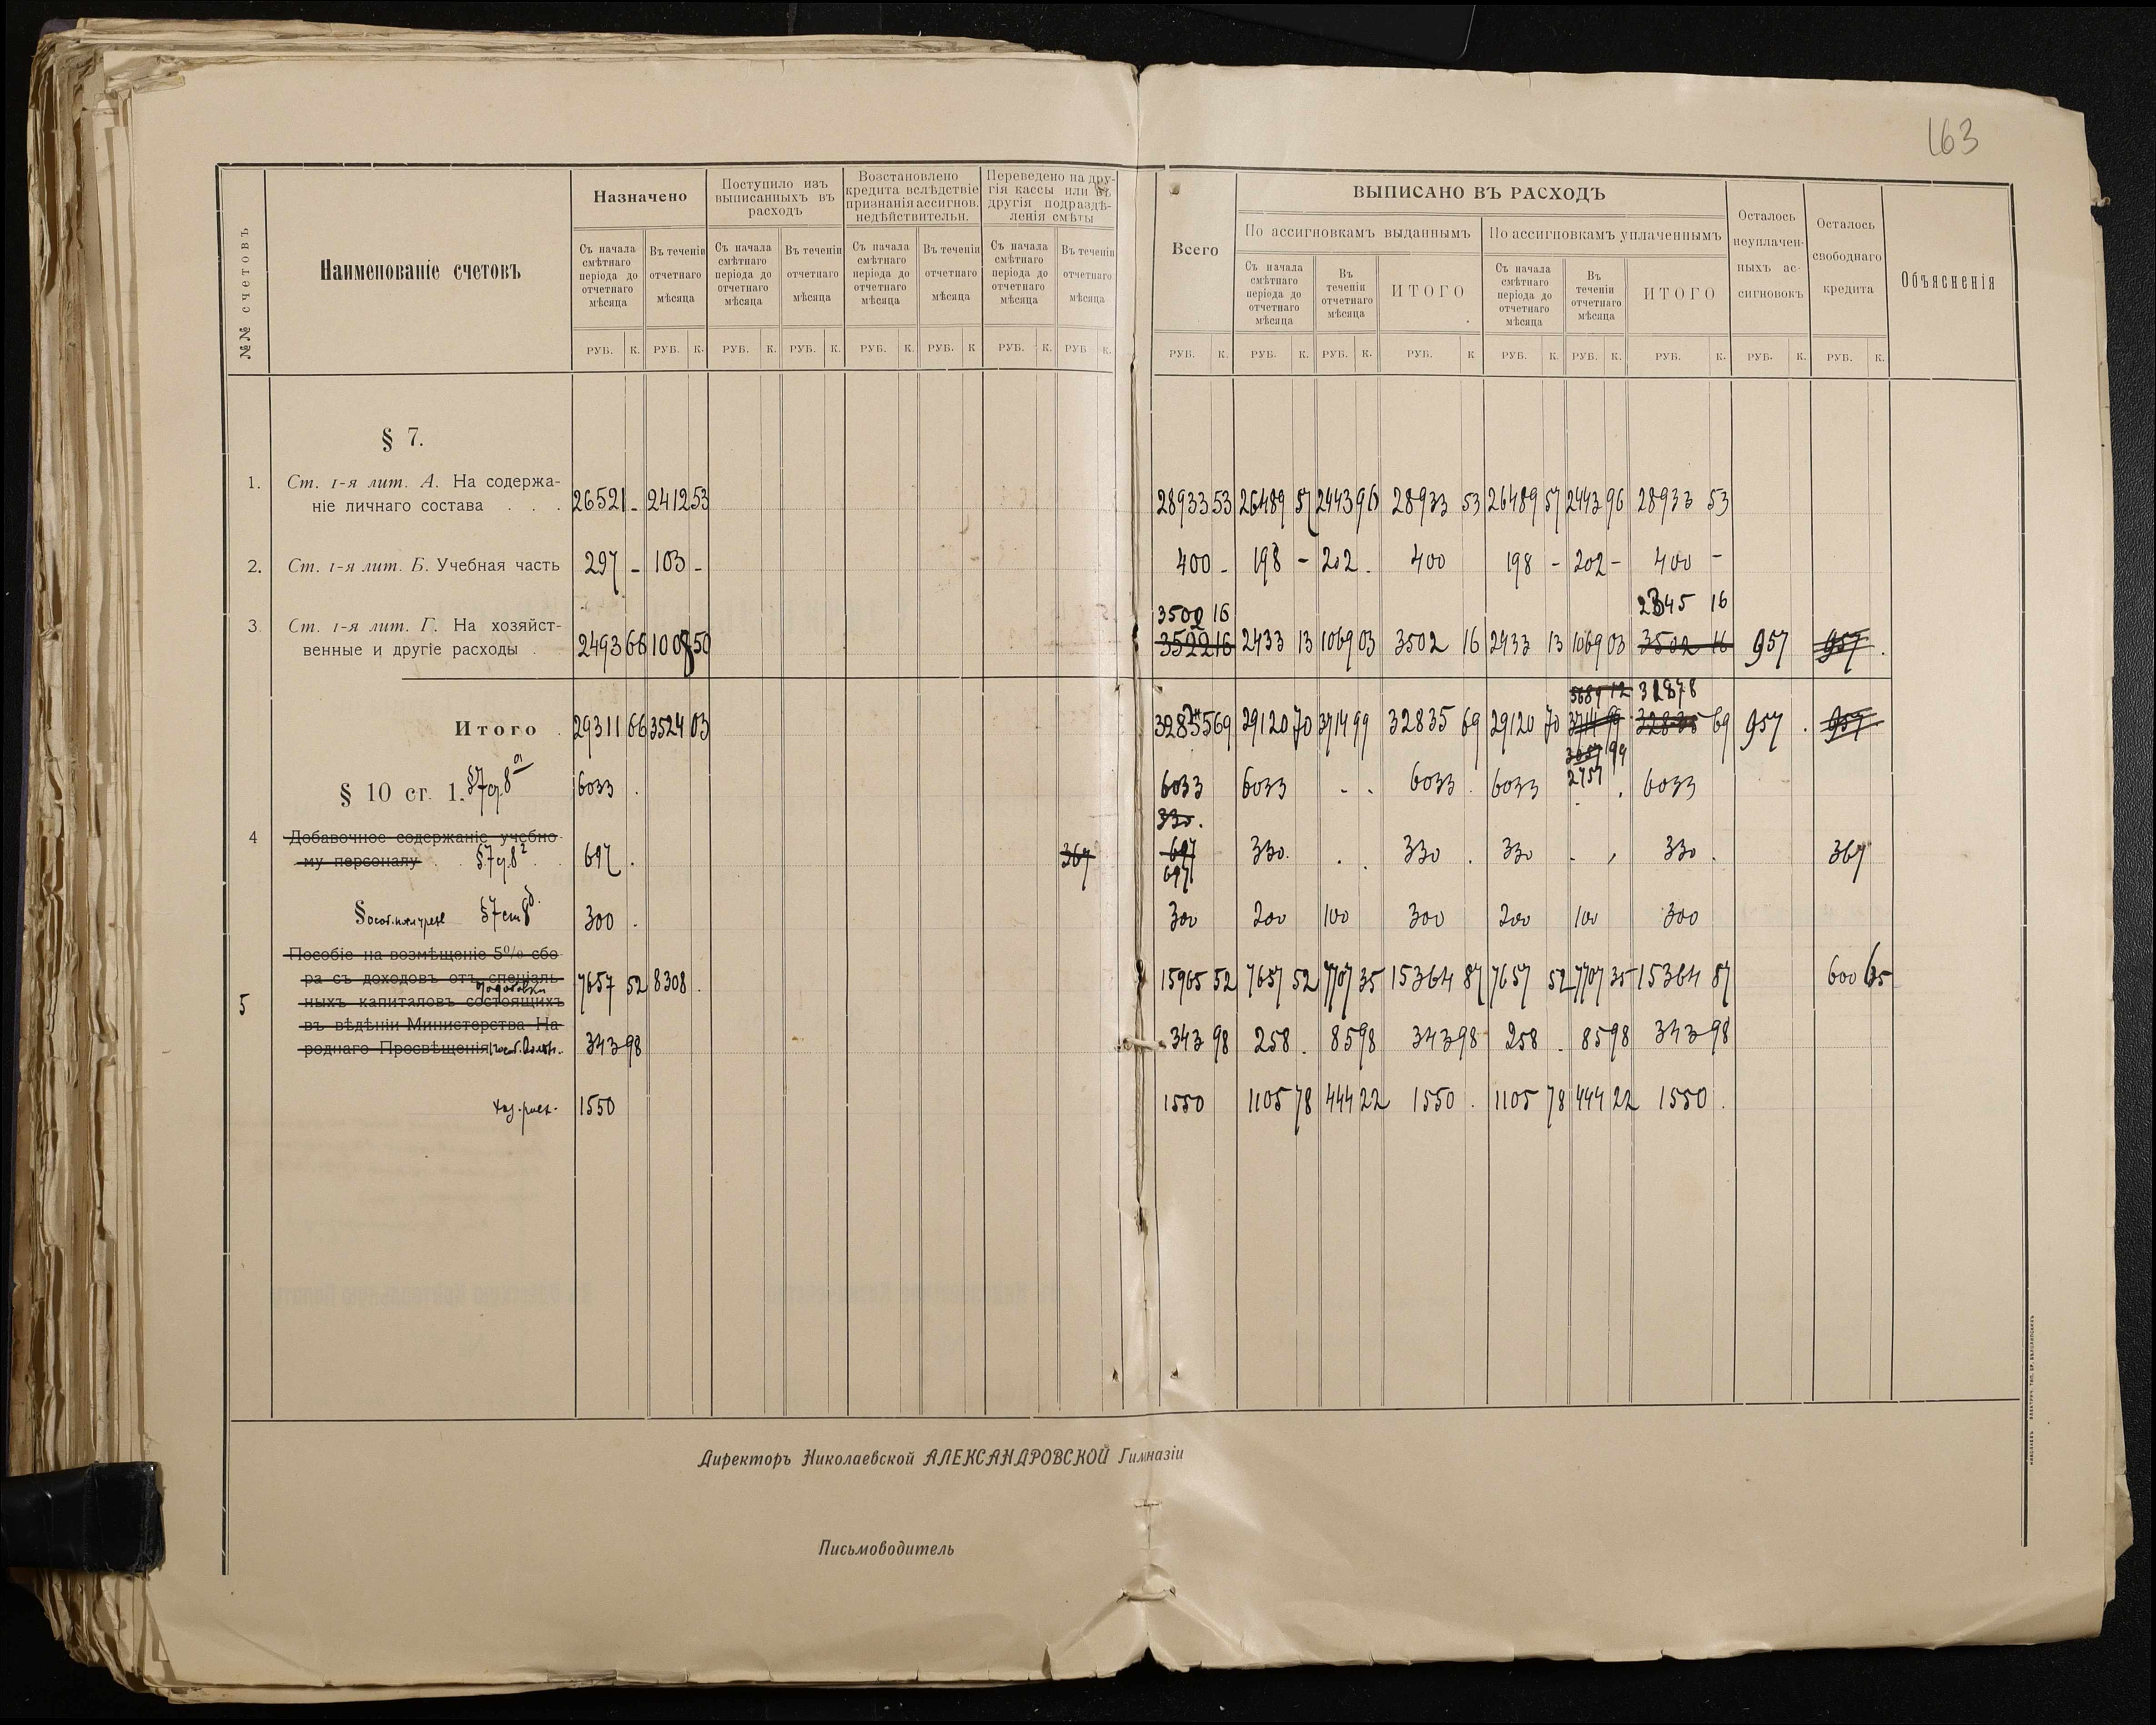 163
№№ счетовъ
Наименованіе счетовъ
Назначено
Поступило изъ
выписанныхъ въ
расходъ
Возстановлено
кредита вслѣдствіе
признанія ассигнов.
недѣйствительн.
Переведено на дру-
гія кассы или въ
другія подраздѣ-
ленія смѣты
Всего
ВЫПИСАНО ВЪ РАСХОДЪ
По ассигновкамъ выданнымъ
По ассигновкамъ уплаченнымъ
Осталось
неуплачен-
ныхъ ас-
сигновокъ
Осталось
свободнаго
кредита
Объясненія
Съ начала
смѣтнаго
періода до
отчетнаго
мѣсяца
Въ теченіи
отчетнаго
мѣсяца
Съ начала
смѣтнаго
періода до
отчетнаго
мѣсяца
Въ теченіи
отчетнаго
мѣсяца
Съ начала
смѣтнаго
періода до
отчетнаго
мѣсяца
Въ теченіи
отчетнаго
мѣсяца
Съ начала
смѣтнаго
періода до
отчетнаго
мѣсяца
Въ теченіи
отчетнаго
мѣсяца
Съ начала
смѣтнаго
періода до
отчетнаго
мѣсяца
Въ
теченіи
отчетнаго
мѣсяца
ИТОГО
Съ начала
смѣтнаго
періода до
отчетнаго
мѣсяца
Въ
теченіи
отчетнаго
мѣсяца
ИТОГО
РУБ. К. РУБ. К. РУБ. К. РУБ. К. РУБ. К. РУБ. К РУБ. К. РУБ К. РУБ. К. РУБ. К. РУБ. К. РУБ. К РУБ. К. РУБ. К. РУБ. К. РУБ. К. РУБ. К.
§ 7.
1. Ст. 1-я лит. А. На содержа-
ніе личнаго состава . . . 26521 - 2412 53 28933 53 26489 57 2443 96 28933 53 26489 57 2443 96 28933 53
2. Ст. 1-я лит. Б. Учебная часть 297 - 103 - 400 - 198 - 202 . 400 198 - 202 - 400 -
3500 16 2345 16
3. Ст. 1-я лит. Г. На хозяйст-
венные и другіе расходы . 2493 66 1008 50 3522 16 2433 13 1069 03 3502 16 2433 13 1069 03 3502 16 957 957 .
32878
Итого . 29311 66 3524 03 32835 69 29120 70 3714 99 32835 69 29120 70 3714 99 32835 69 957 . 957
2757
§ 10 ст. 1. §7 ст. 8 6033 . 6033 6033 - . 6033 . 6033 . . 6033
330.
4 Добавочное содержаніе учебно-
му персоналу . . §7 ст. 8 697 . 367 697 330. . . 330 . 330 . . 330 . 367
697
§ §7 ст 8 300 . 300 200 100 300 200 100 300
5 Пособіе на возмѣщеніе 5% сбо-
ра съ доходовъ отъ спеціаль-
7657 52 8308 . 15965 52 7657 52 7707 35 15364 87 7657 52 7707 35 15364 87 600 65
ныхъ капиталовъ состоящихъ
въ вѣдѣніи Министерства На-
роднаго Просвѣщенія 343 98 343 98 258 . 85 98 343 98 258 . 85 98 343 98
1550 1550 1105 78 444 22 1550 . 1105 78 444 22 1550 .
Директоръ Николаевской АЛЕКСАНДРОВСКОЙ Гимназіи
Письмоводитель